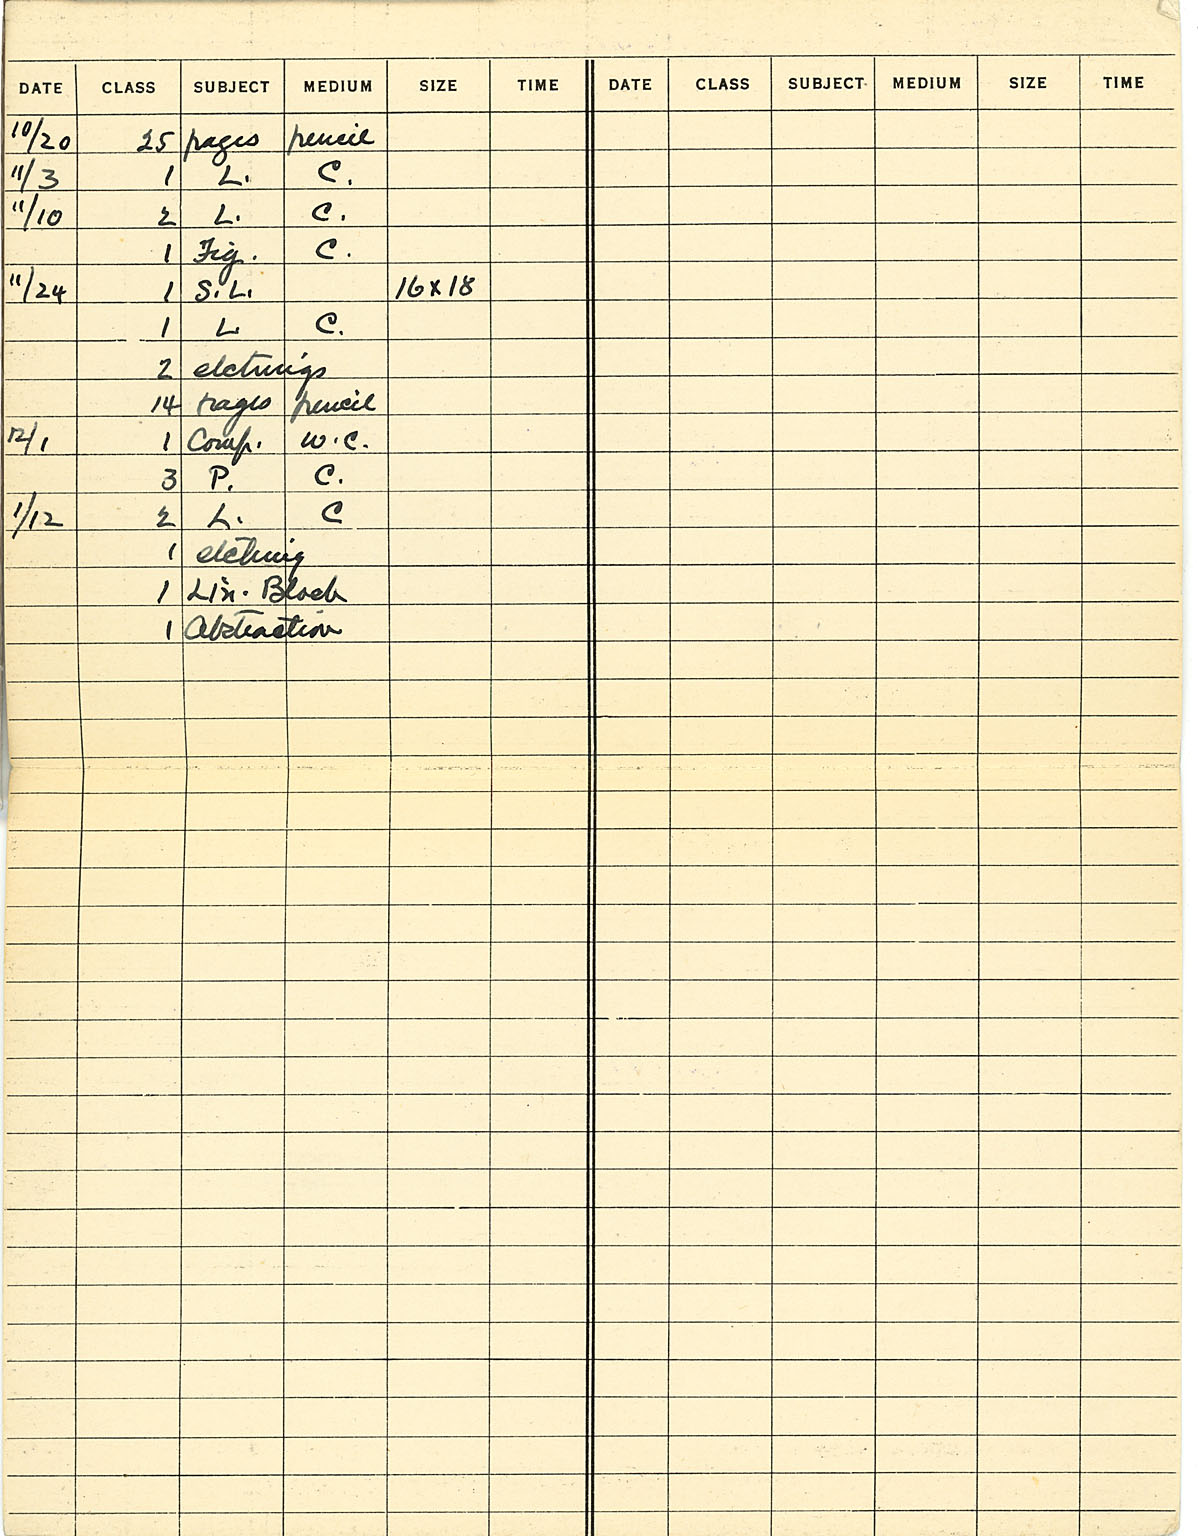 DATE CLASS SUBJECT MEDIUM SIZE TIME DATE CLASS SUBJECT MEDIUM SIZE TIME
10/20 25 pages pencil
11/3 1 L. C.
11/10 2 L. C.
1 Fig. C.
11/24 1 S.L. 16x18
1 L C.
2 etchings
14 pages pencil
12/1 1 Comp. W.C.
3 P. C.
1/12 2 L. C
1 etching
1 Lin. Block
1 Abstraction